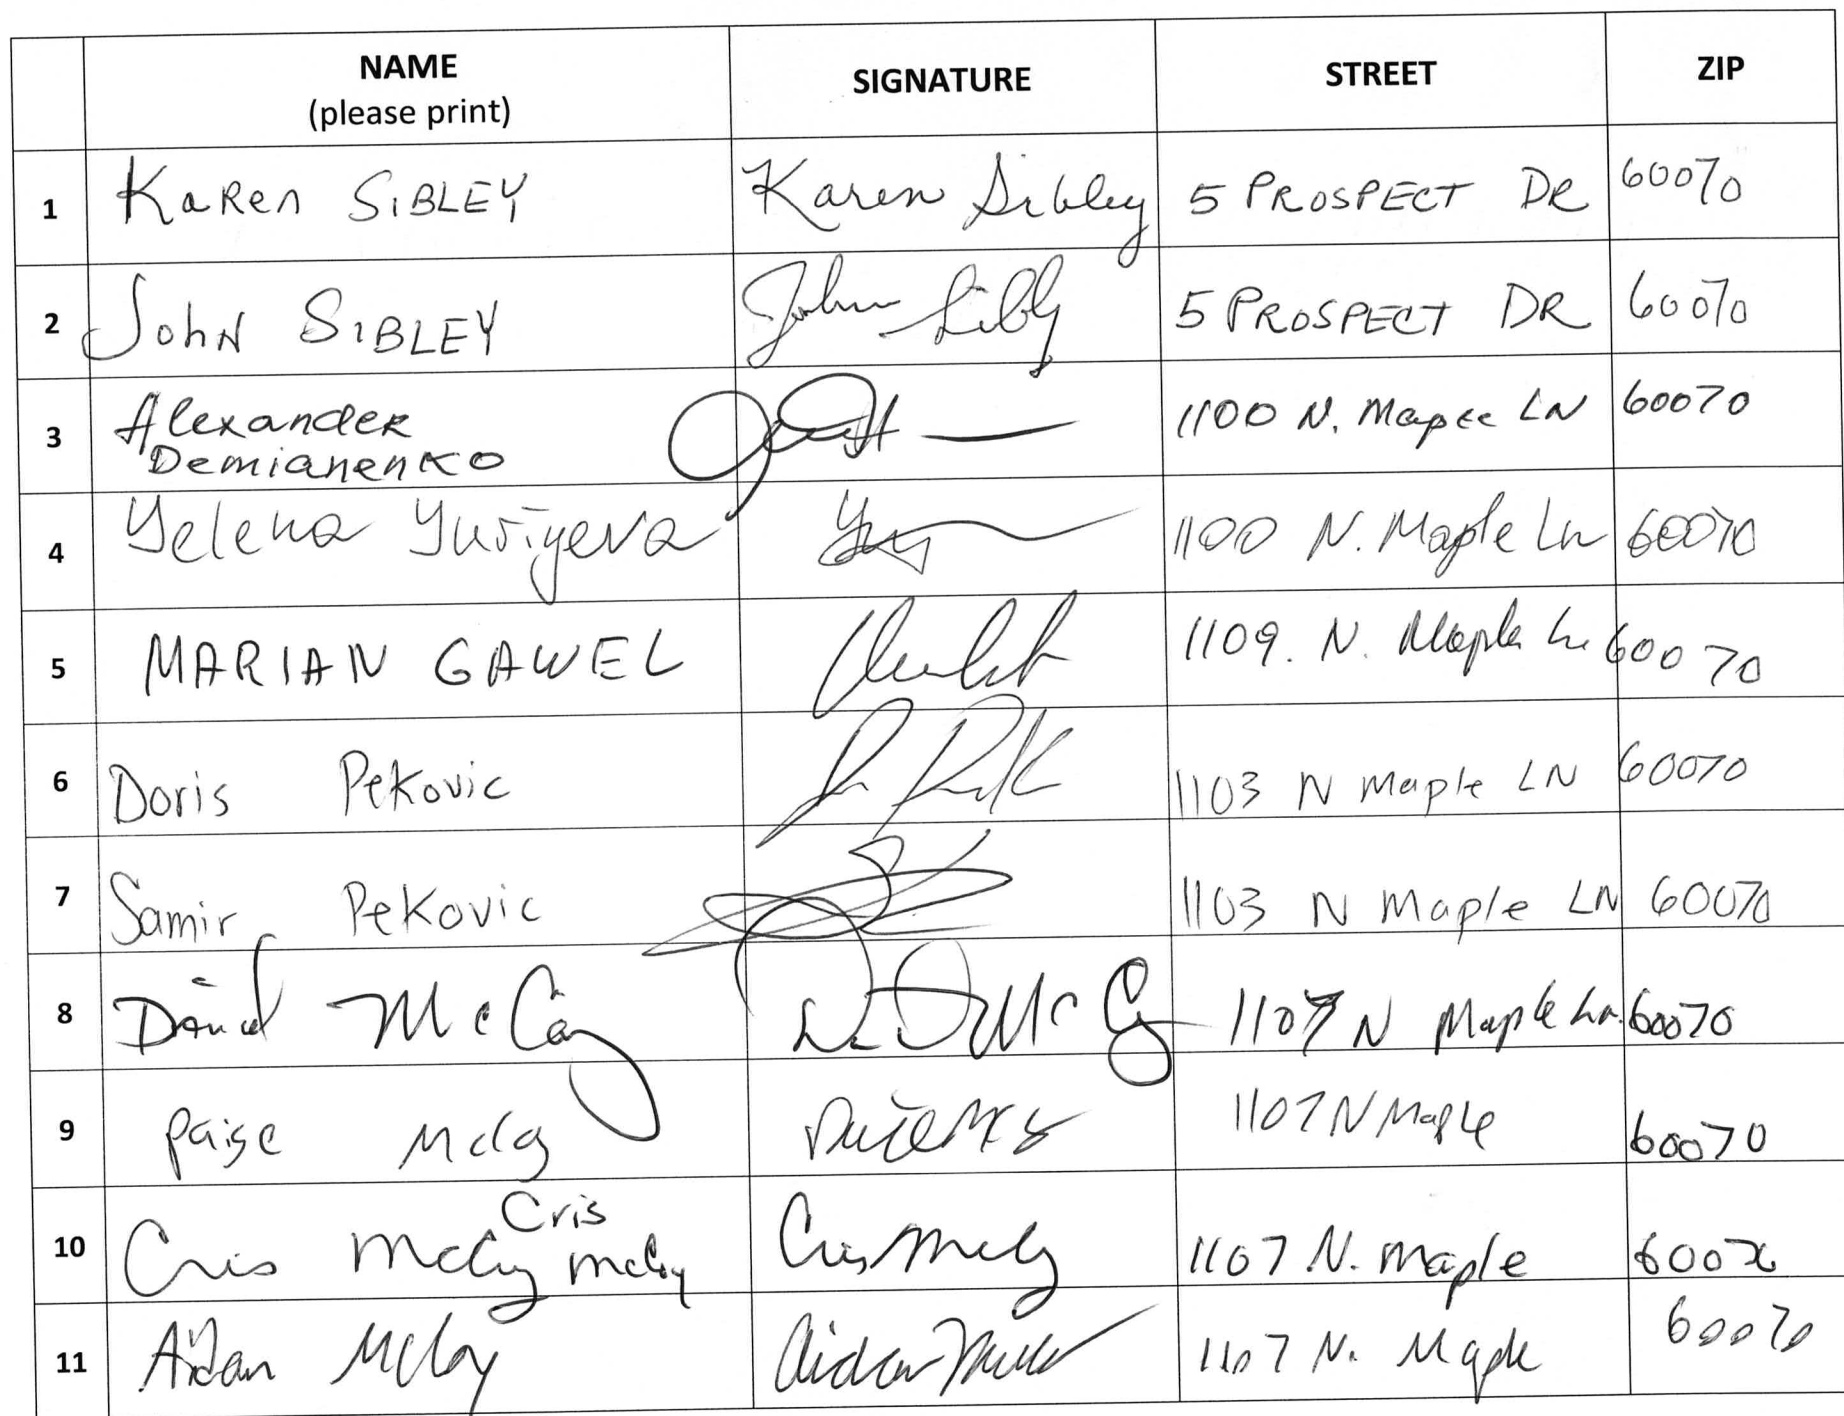 NAME SIGNATURE STREET ZIP
(please print)
1 Karen SIBLEY Karen Sibley 5 PROSPECT DR 60070
2 John SIBLEY John Sibly 5 PROSPECT DR 60070
3 Alexander 1100 N. Maple LN 60070
Demianenko
4 Yelena Yuriyeva 1100 N. Maple Ln 60070
5 MARIAN GAWEL 1109. N. Maple Ln 60070
6 Doris Pekovic 1103 N Maple LN 60070
7 Samir Pekovic 1103 N Maple LN 60070
8 Daniel McCoy McCoy 1107 N Maple Ln. 60070
9 Paige McCoy 1107 N Maple 60070
Cris
10 Cris McCoy McCoy Cris McCoy 1107 N. Maple 60070
11 Aidan McCoy Aidan 1107 N. Maple 60070